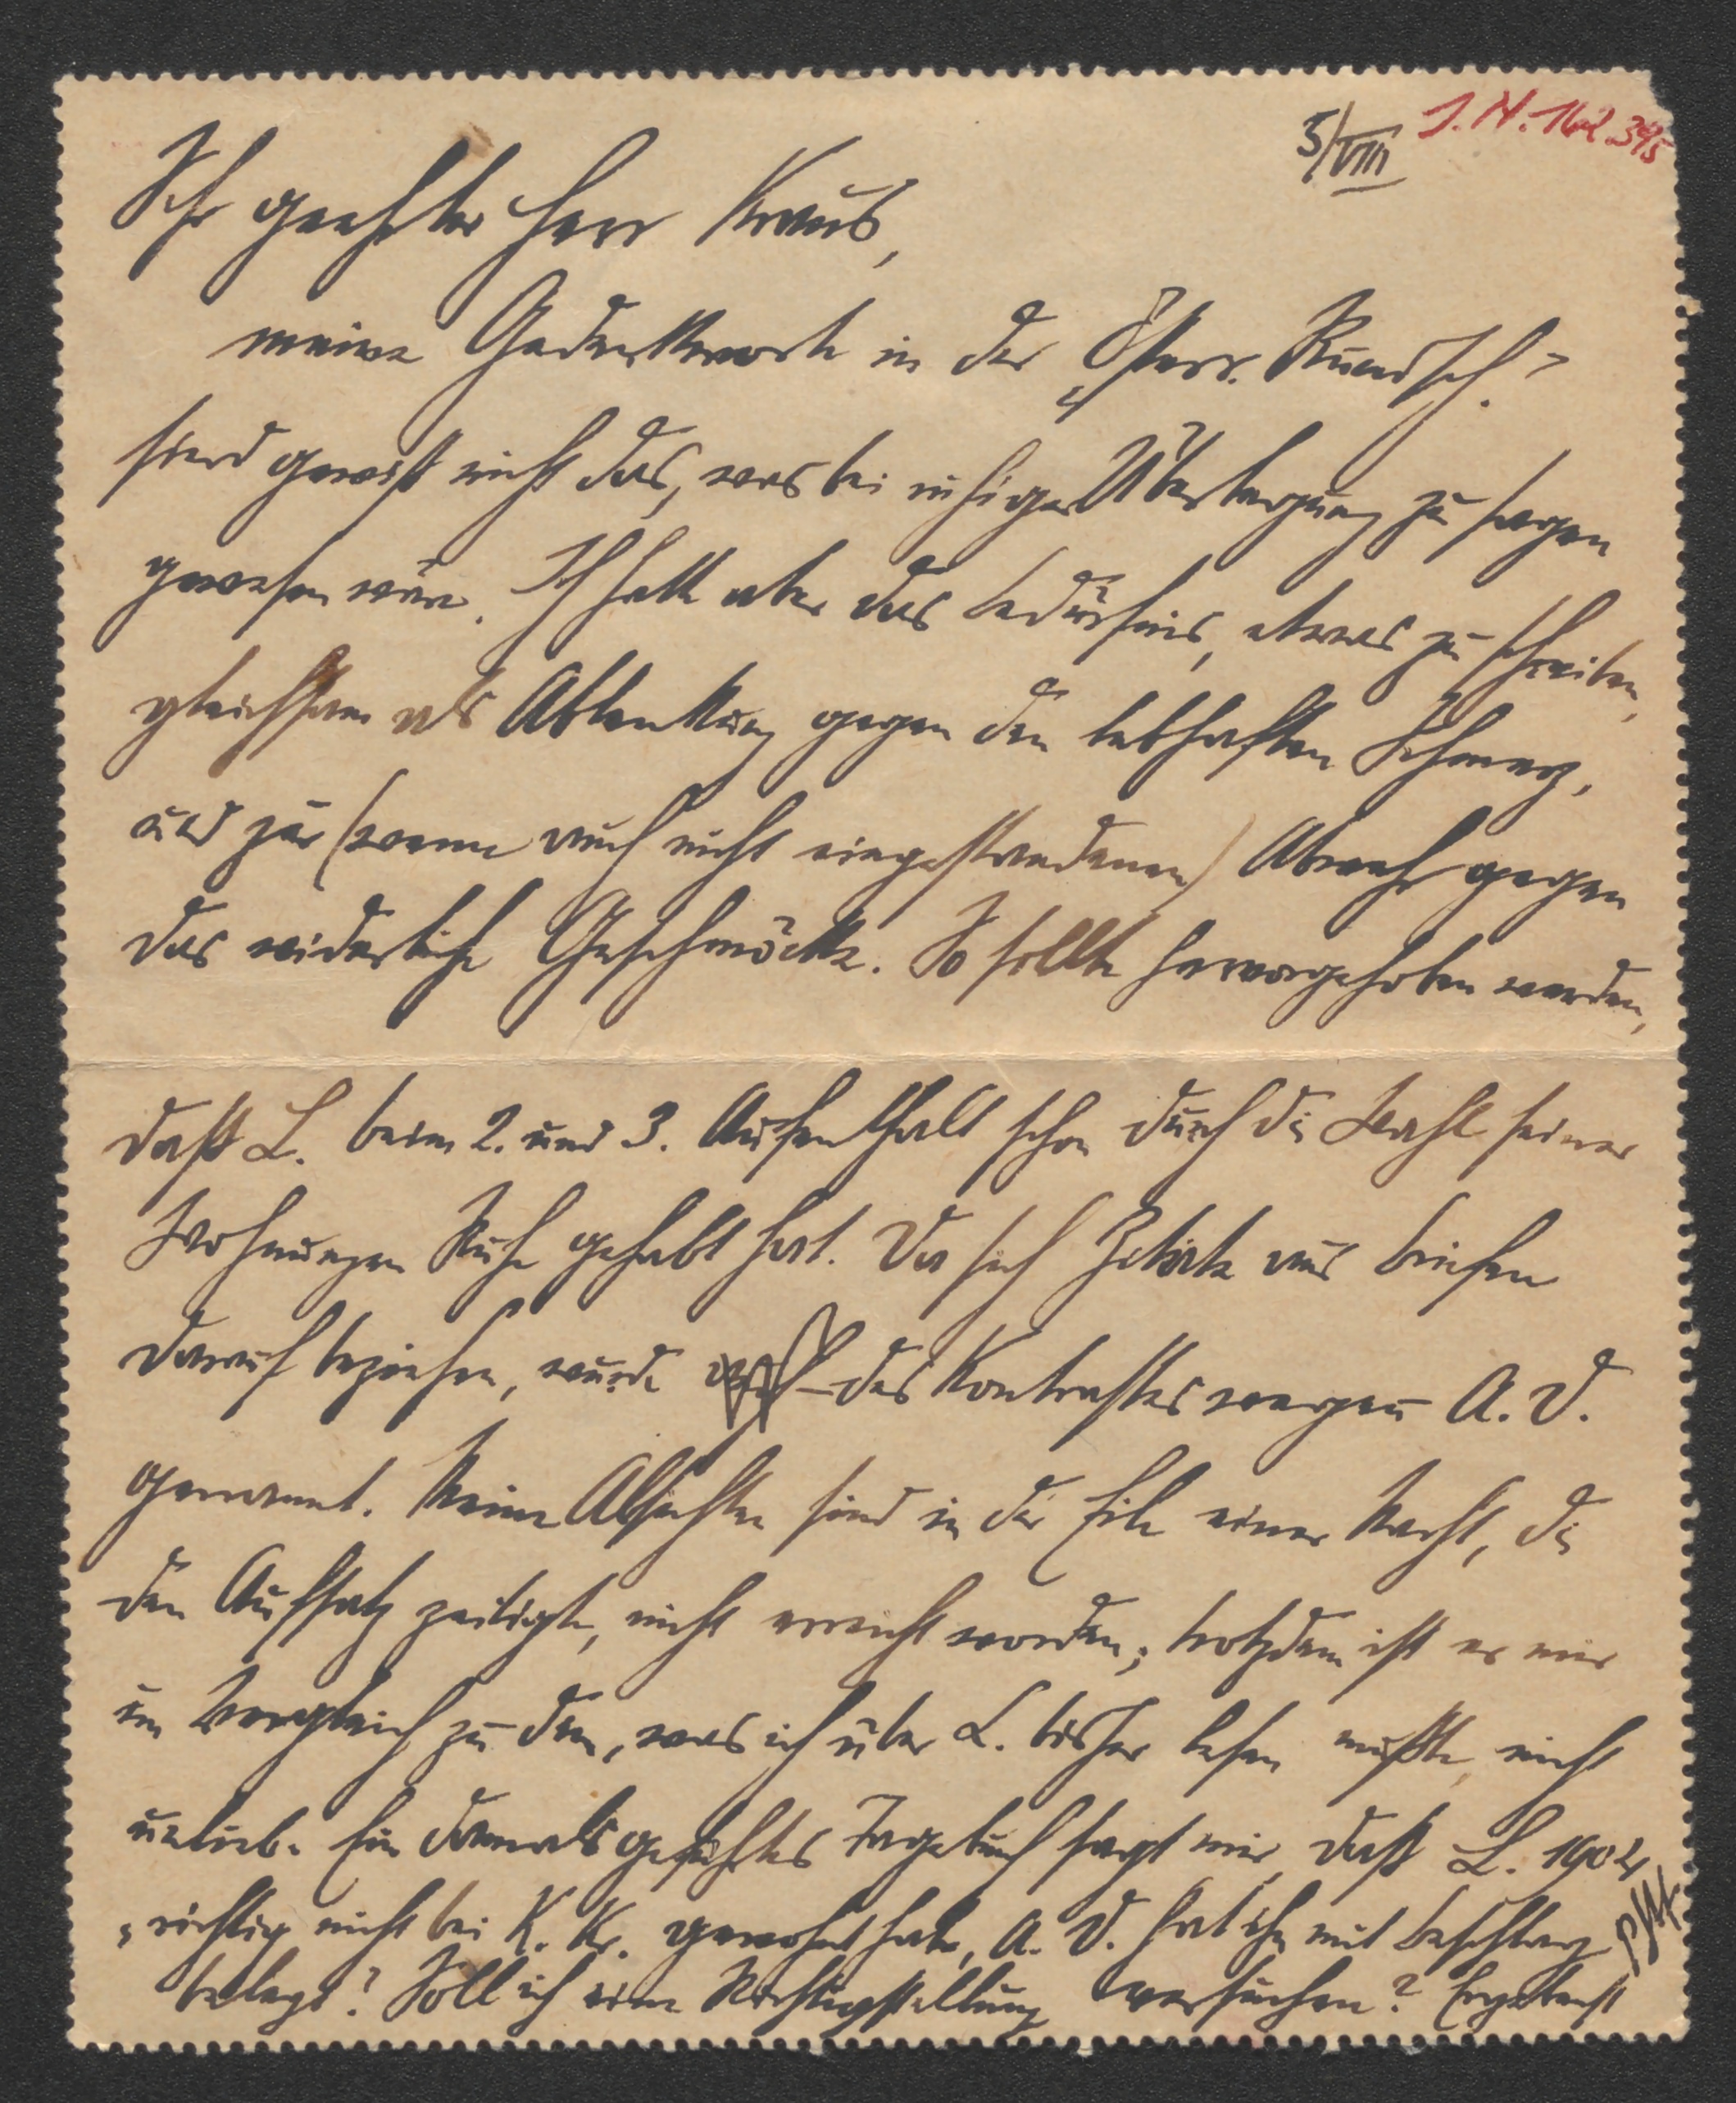 5/VIII
J. N. 162.395
Sehr geehrter Herr Kraus,
meine Gedenkworte in der „Österr. Rundsch.“
sind gewiß nicht das, was bei ruhiger Überlegung zu sagen
gewesen wäre. Ich hatte aber das Bedürfnis, etwas zu schreiben,
gleichsam als Ablenkung gegen den lebhaften Schmerz,
und zur (wenn auch nicht eingestandenen) Abwehr gegen
das widerliche Geschmöcke. So sollte hervorgehoben werden,
daß L. beim 2. und 3. Aufenthalt schon durch die Wahl seiner
Wohnungen Ruhe gehabt hat. Da sich Zitate aus Briefen
darauf beziehen, wurde – des Kontrastes wegen – A. V.
genannt. Meine Absichten sind in der Eile einer Nacht, die
den Aufsatz zeitigte, nicht erreicht worden; trotzdem ist er mir
im Vergleich zu dem, was ich über L. bisher lesen mußte, nicht
unlieb. Ein damals geführtes Tagebuch sagt mir, daß L. 1904
„richtig nicht bei K. Kr. gewohnt habe, A. V. hat ihn mit Beschlag
belegt! Soll ich eine Richtigstellung versuchen? Ergebenst